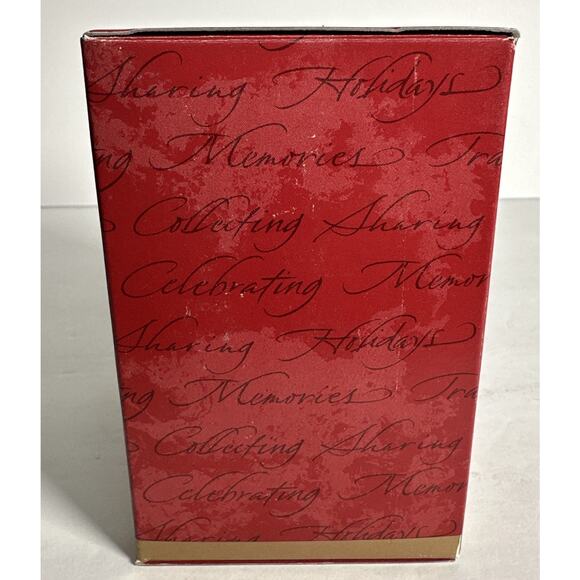 Sharing Holidays
ng Memories Tra
Collecting Sharing
Celebrating Memor
Sharing Holidays
ng Memories Tra
Collecting Sharing
Celebrating Memor
Sharing Holidays